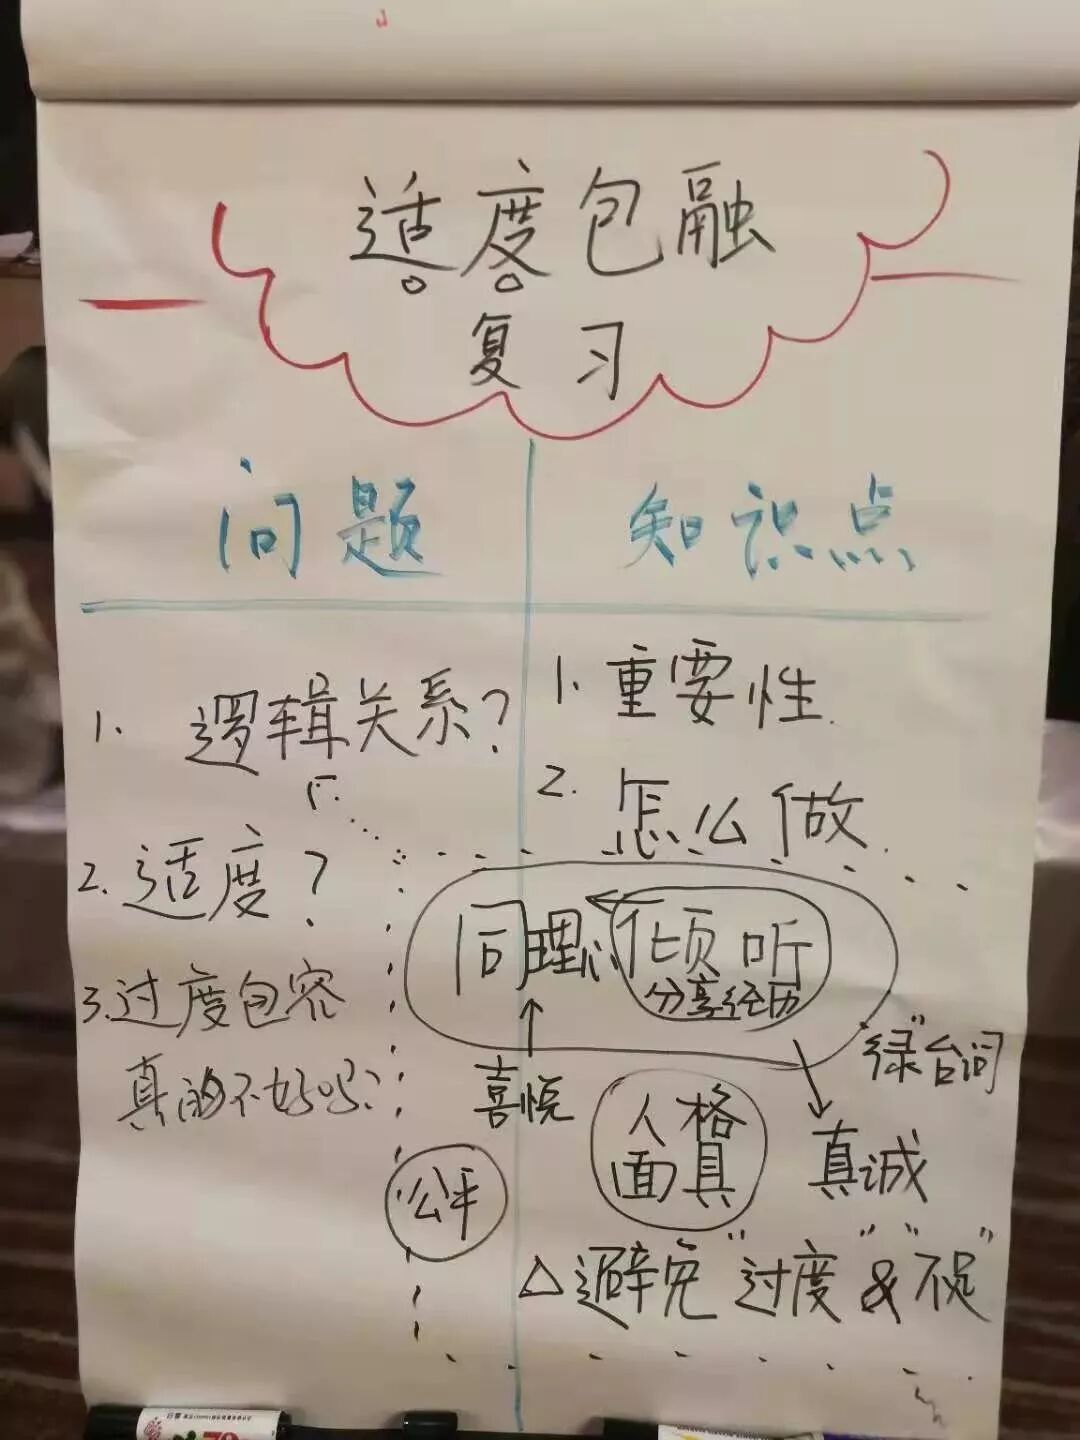 适度包融
复习
问题
知识点
1. 逻辑关系?
2. 适度?
3. 过度包容
真的不好吗?
1. 重要性.
2. 怎么做.
同理心 倾听
分享经历
喜悦
"绿"台词
人格
面具
真诚
公平
△避免"过度"&"不足"